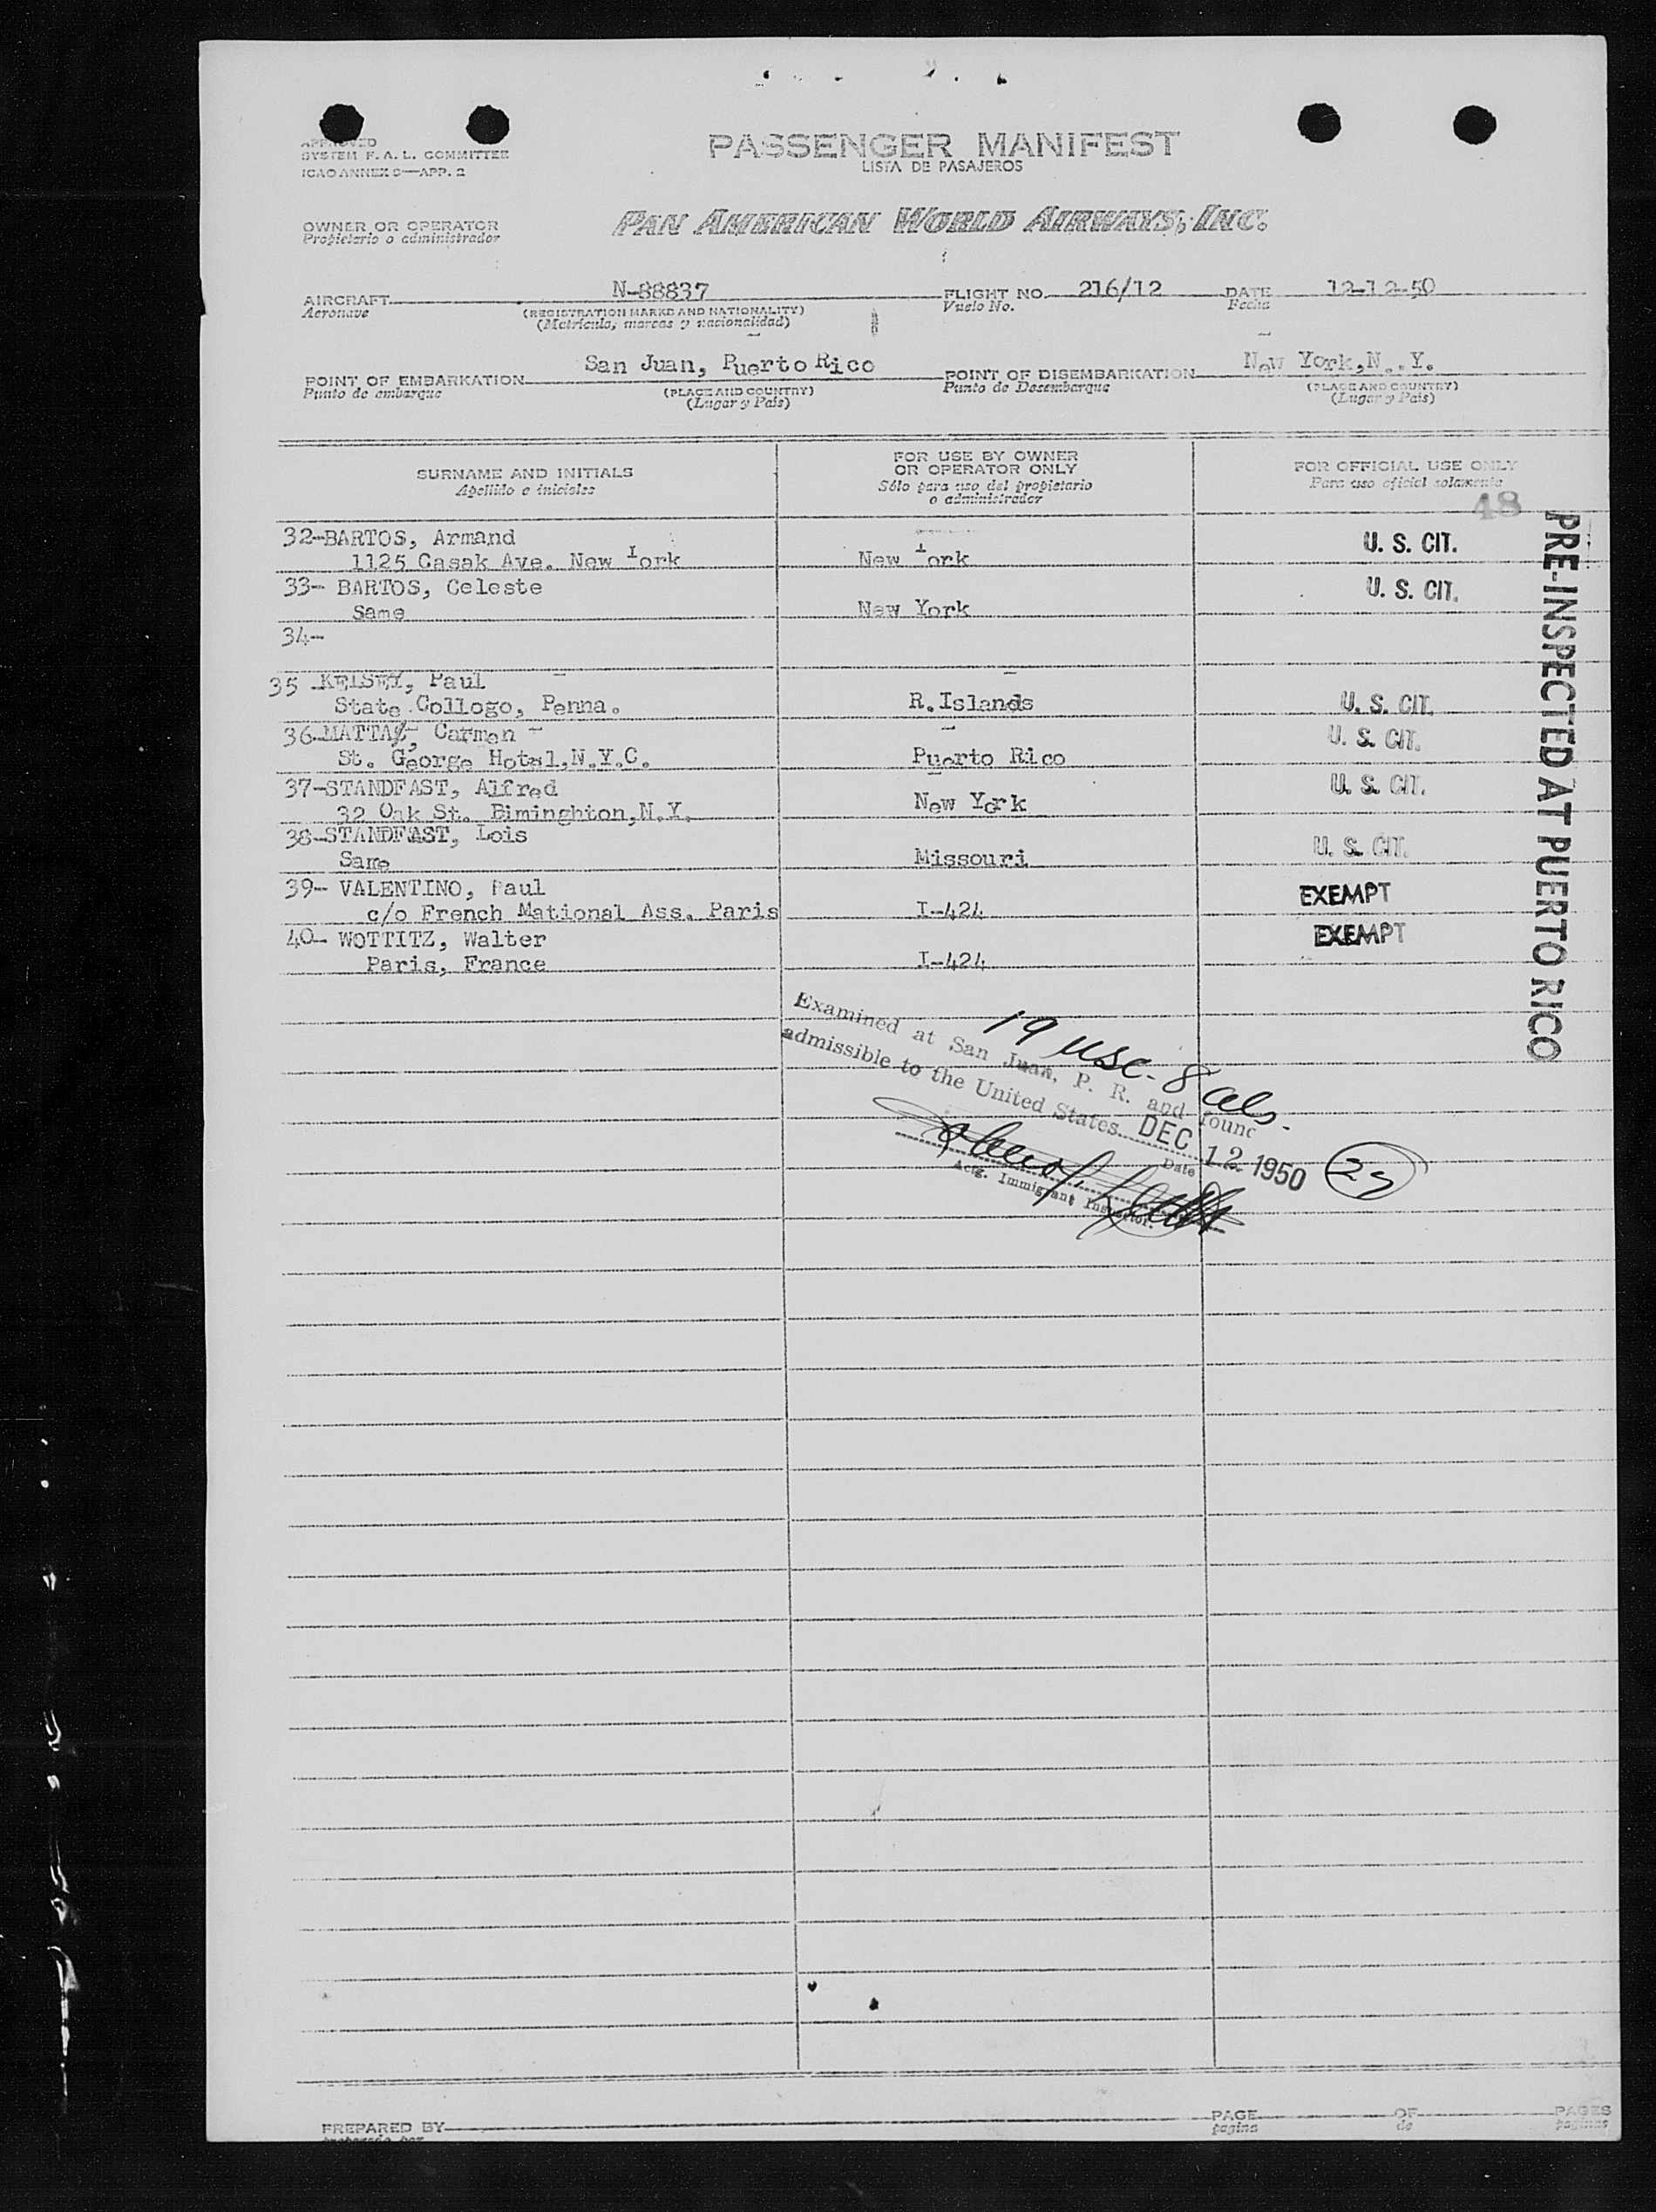 APPROVED
SYSTEM F. A. L. COMMITTEE
ICAO ANNEX 9—APP. 2
PASSENGER MANIFEST
LISTA DE PASAJEROS
OWNER OR OPERATOR
Propietario o administrador
PAN AMERICAN WORLD AIRWAYS, INC.
AIRCRAFT N-88837 FLIGHT NO. 216/12 DATE 12-12-50
Aeronave (REGISTRATION MARKS AND NATIONALITY) Vuelo No. Fecha
(Matrícula, marcas y nacionalidad)
POINT OF EMBARKATION San Juan, Puerto Rico POINT OF DISEMBARKATION New York,N..Y.
Punto de embarque (PLACE AND COUNTRY) Punto de Desembarque (PLACE AND COUNTRY)
(Lugar y País) (Lugar y País)
SURNAME AND INITIALS
Apellido e iniciales
FOR USE BY OWNER
OR OPERATOR ONLY
Sólo para uso del propietario
o administrador
FOR OFFICIAL USE ONLY
Para uso oficial solamente
48
32-BARTOS, Armand U. S. CIT.
1125 Casak Ave. New York New York
33- BARTOS, Celeste U. S. CIT.
Same New York
34-
35 KELSEY, Paul
State Collogo, Penna. R.Islands U. S. CIT.
36-MATTA, Carmen U. S. CIT.
St. George Hotel,N.Y.C. Puerto Rico
37-STANDFAST, Alfred U. S. CIT.
32 Oak St. Biminghton,N.Y. New York
38-STANDFAST, Lois U. S. CIT.
Same Missouri
39- VALENTINO, Paul EXEMPT
c/o French Mational Ass. Paris I-424
40- WOTTITZ, Walter EXEMPT
Paris, France I-424
PRE-INSPECTED AT PUERTO RICO
19 USC- 8 als.
Examined at San Juan, P. R. and found
admissible to the United States DEC 12 1950
Date
Actg. Immigrant Inspector.
PREPARED BY PAGE OF PAGES
página de páginas